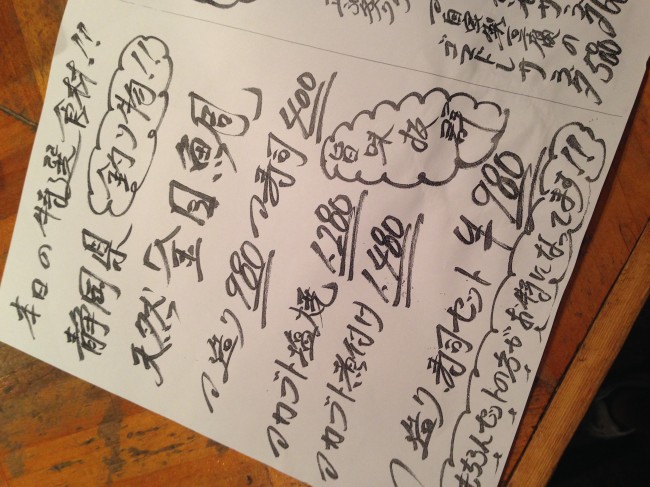 本日の特選食材!!
静岡県 釣り物!!
天然金目鯛
造り 980 寿司 400
カブト塩焼 1,280
カブト煮付け 1,480
旨味抜群
造り寿司セット 980
もちろんセットの方がお得になってます!!
ゴマドレ
580